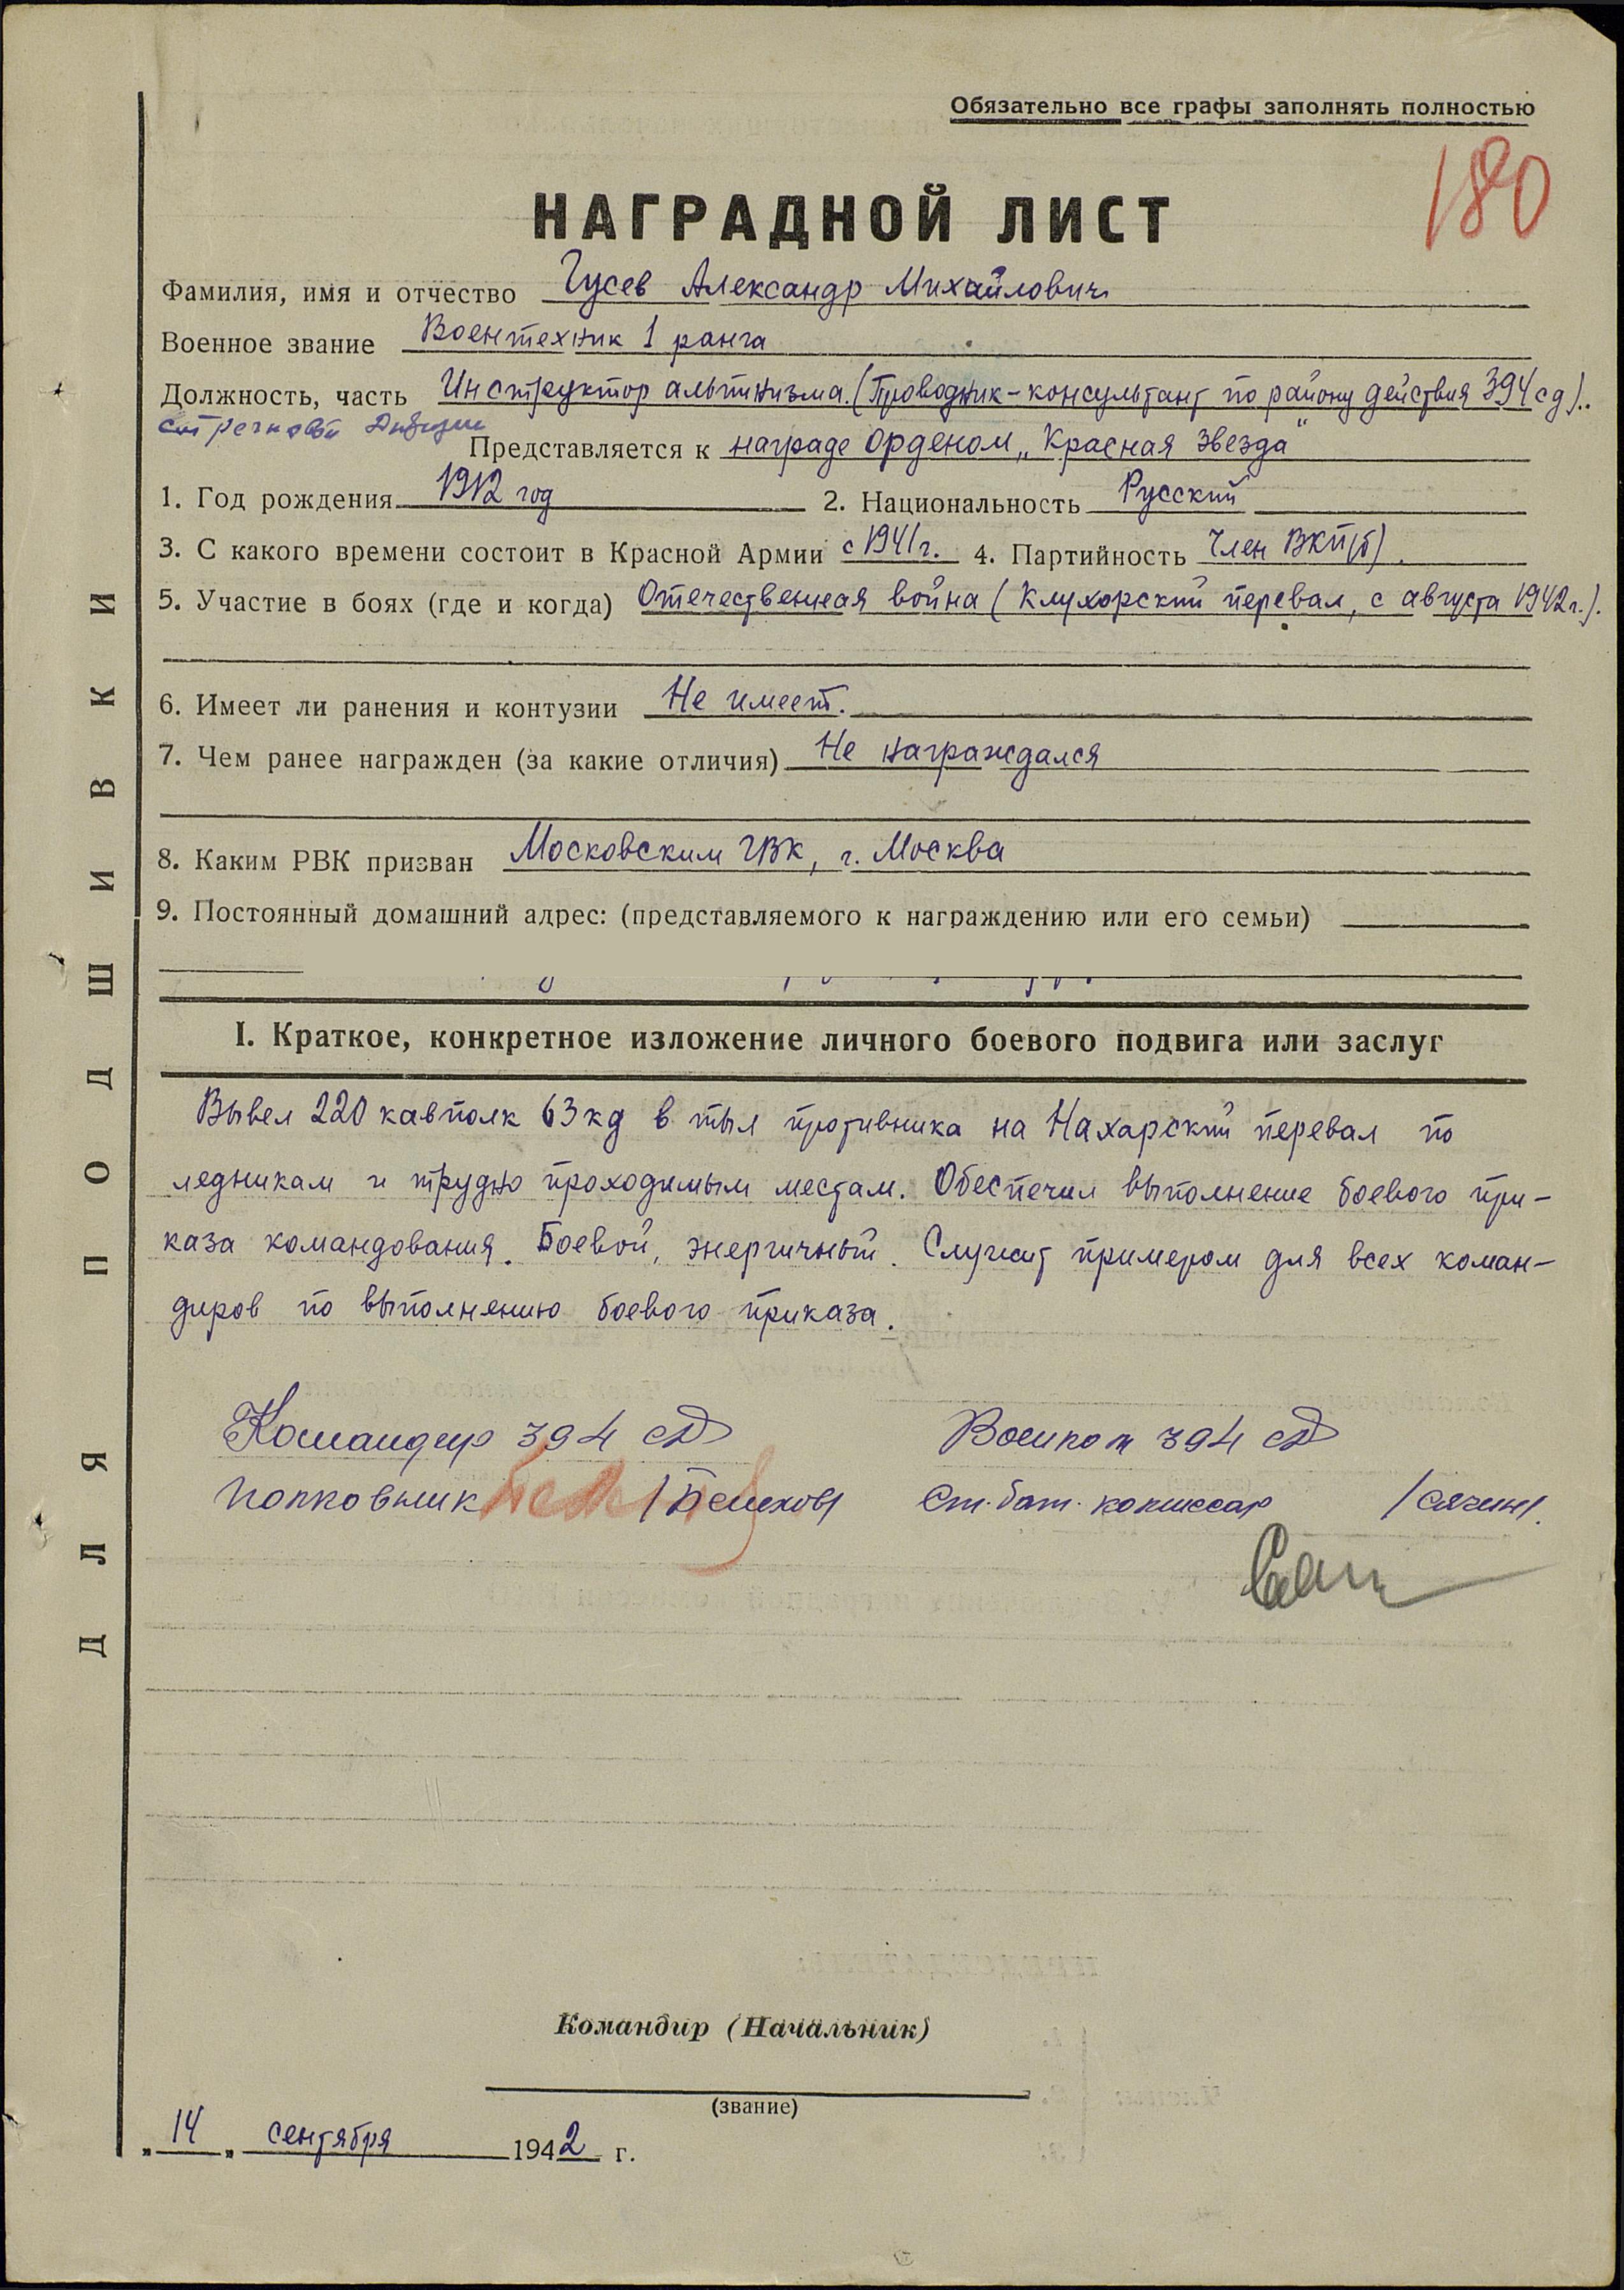 Обязательно все графы заполнять полностью
180
НАГРАДНОЙ ЛИСТ
Фамилия, имя и отчество Гусев Александр Михайлович
Военное звание Воентехник 1 ранга
Должность, часть Инструктор альпинизма. (Проводник-консультант по району действия 394 сд)..
стрелковой дивизии
Представляется к награде орденом „Красная звезда“
1. Год рождения 1912 год 2. Национальность Русский
3. С какого времени состоит в Красной Армии с 1941 г. 4. Партийность Член ВКП(б).
5. Участие в боях (где и когда) Отечественная война (Клухорский перевал, с августа 1942 г.).
6. Имеет ли ранения и контузии Не имеет.
7. Чем ранее награжден (за какие отличия) Не награждался
8. Каким РВК призван Московским ГВК, г. Москва
9. Постоянный домашний адрес: (представляемого к награждению или его семьи)
I. Краткое, конкретное изложение личного боевого подвига или заслуг
Вывел 220 кавполк 63 кд в тыл противника на Нахарский перевал по
ледникам и трудно проходимым местам. Обеспечил выполнение боевого при-
каза командования. Боевой, энергичный. Служит примером для всех коман-
диров по выполнению боевого приказа.
Командир 394 сд Военком 394 сд
полковник /Белехов/ Ст. бат. комиссар
Командир (Начальник)
(звание)
„14„ сентября 1942 г.
ДЛЯ ПОДШИВКИ